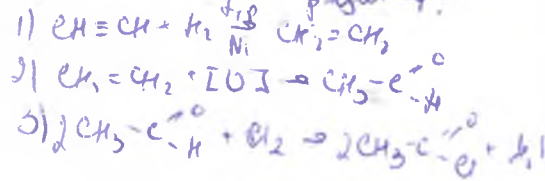 1) CH≡CH + H₂ →(Ni) CH₂=CH₂
2) CH₂=CH₂ + [O] → CH₃-C(=O)-H
3) 2CH₃-C(=O)-H + Cl₂ → 2CH₃-C(=O)-Cl + H₂